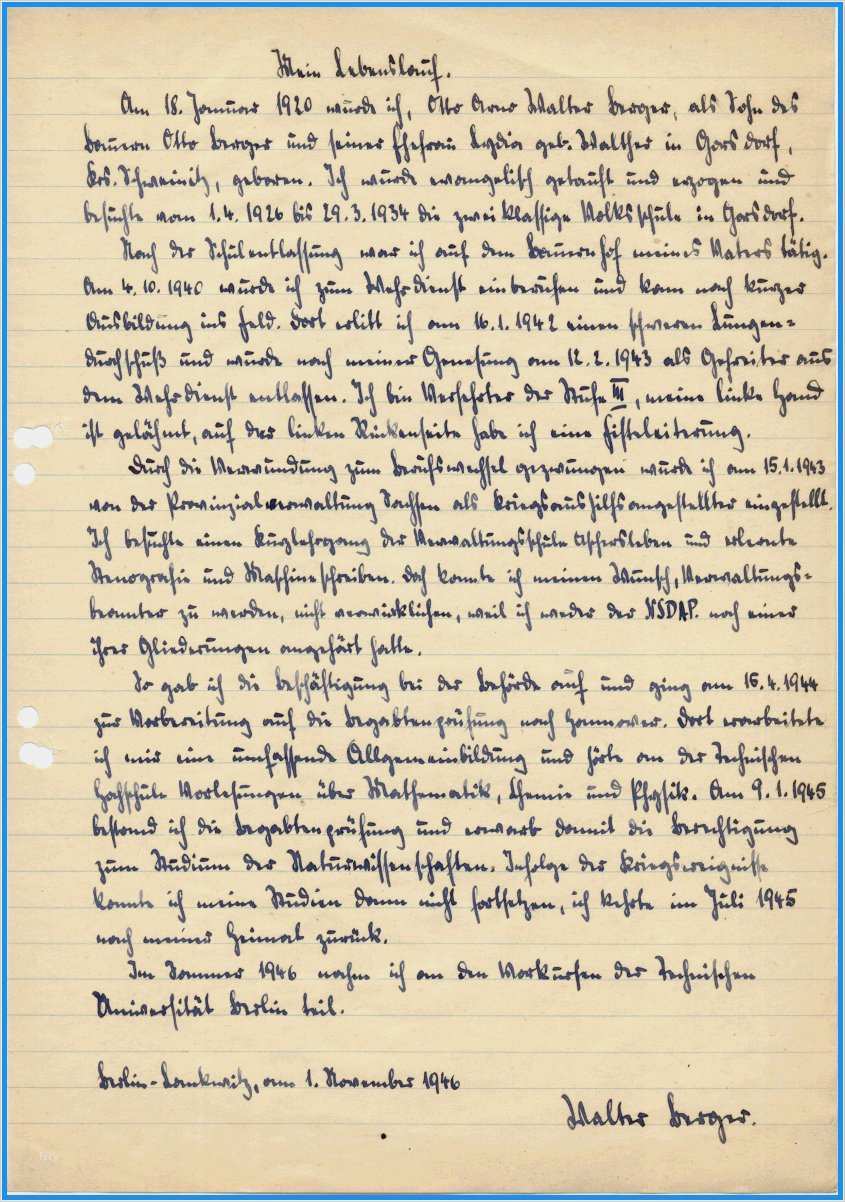 Mein Lebenslauf.
Am 18. Januar 1920 wurde ich, Otto Arno Walter Berger, als Sohn des
Bauern Otto Berger und seiner Ehefrau Lydia geb. Walther in Gorsdorf,
Krs. Schweinitz, geboren. Ich wurde evangelisch getauft und erzogen und
besuchte vom 1.4.1926 bis 29.3.1934 die zweiklassige Volksschule in Gorsdorf.
Nach der Schulentlassung war ich auf dem Bauernhof meines Vaters tätig.
Am 4.10.1940 wurde ich zum Wehrdienst einberufen und kam nach kurzer
Ausbildung ins Feld. Dort erlitt ich am 16.1.1942 einen schweren Lungen=
durchschuß und wurde nach meiner Genesung am 12.2.1943 als Gefreiter aus
dem Wehrdienst entlassen. Ich bin Versehrter der Stufe III, meine linke Hand
ist gelähmt, auf der linken Rückenseite habe ich eine Fisteleiterung.
Durch die Verwundung zum Berufswechsel gezwungen wurde ich am 15.1.1943
von der Provinzialverwaltung Sachsen als Kriegsaushilfsangestellter eingestellt.
Ich besuchte einen Kurzlehrgang der Verwaltungsschule Aschersleben und erlernte
Stenografie und Maschineschreiben. Doch konnte ich meinen Wunsch, Verwaltungs=
beamter zu werden, nicht verwirklichen, weil ich weder der NSDAP. noch einer
ihrer Gliederungen angehört hatte.
So gab ich die Beschäftigung bei der Behörde auf und ging am 15.4.1944
zur Vorbereitung auf die Begabtenprüfung nach Hannover. Dort erarbeitete
ich mir eine umfassende Allgemeinbildung und hörte an der Technischen
Hochschule Vorlesungen über Mathematik, Chemie und Physik. Am 9.1.1945
bestand ich die Begabtenprüfung und erwarb damit die Berechtigung
zum Studium der Naturwissenschaften. Infolge der Kriegsereignisse
konnte ich meine Studien dann nicht fortsetzen, ich kehrte im Juli 1945
nach meiner Heimat zurück.
Im Sommer 1946 nahm ich an den Vorkursen der Technischen
Universität Berlin teil.
Berlin-Lankwitz, am 1. November 1946
Walter Berger.